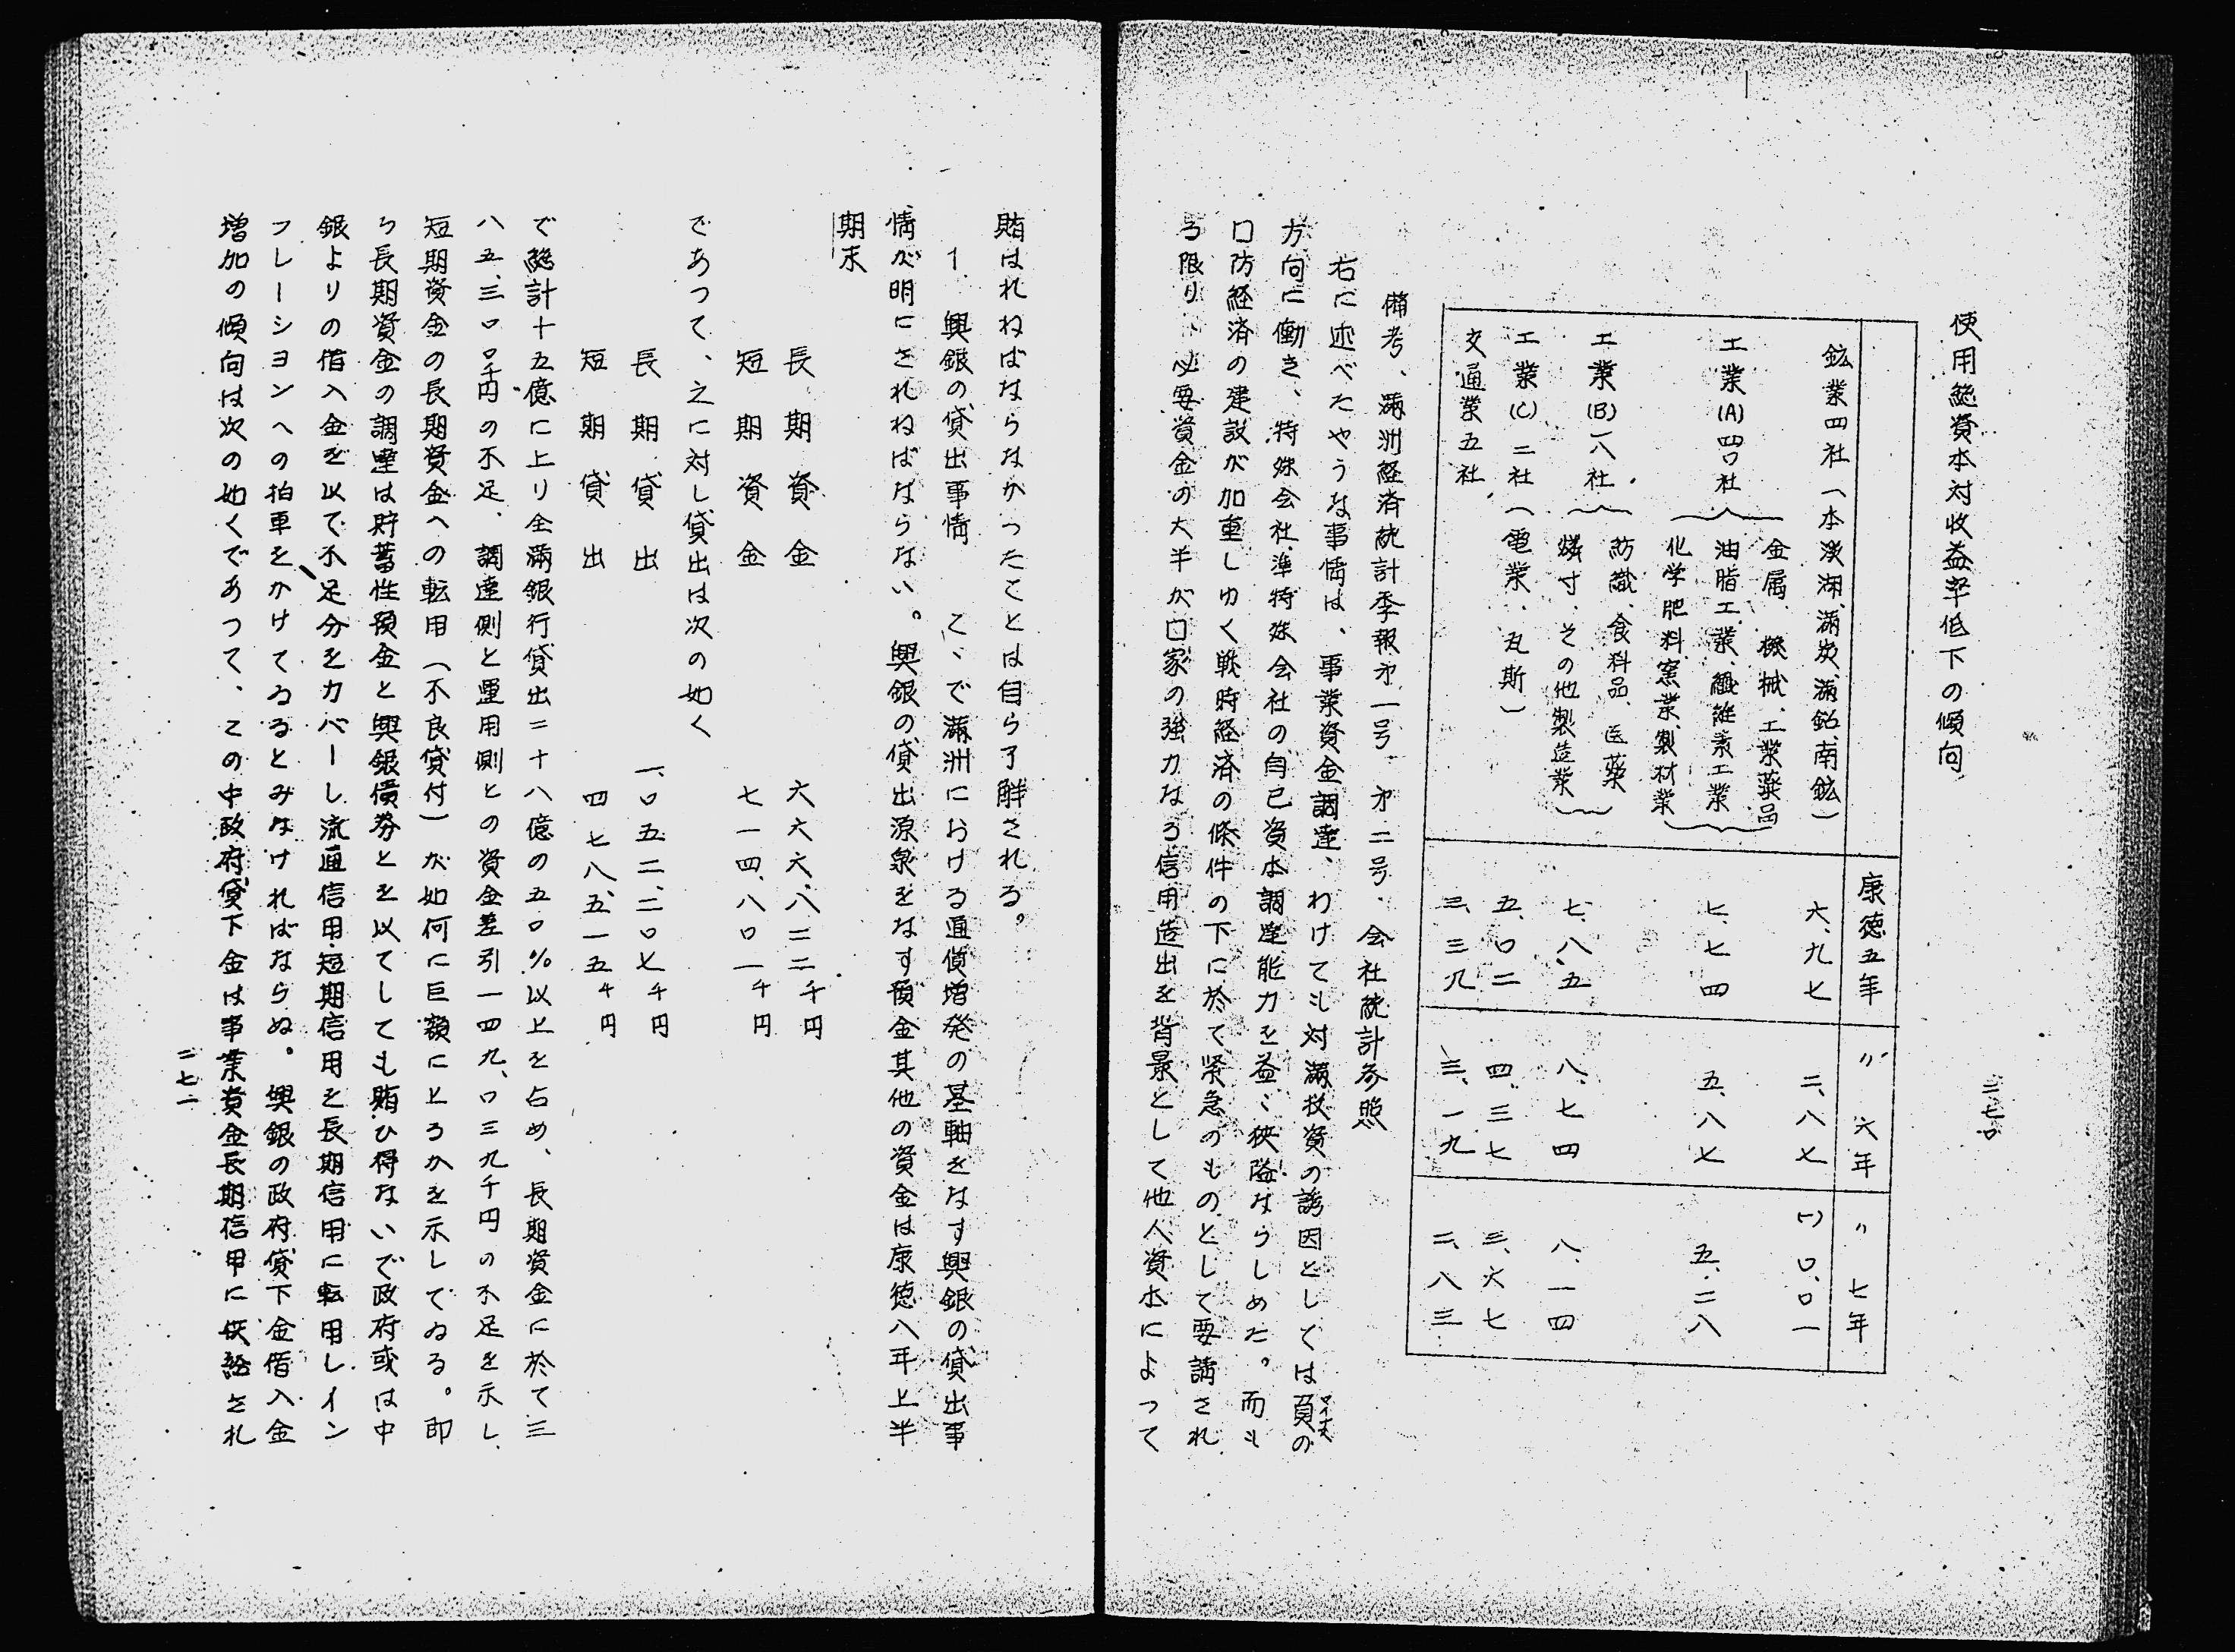 二七〇
使用総資本対收益率低下の傾向
康徳五年 〃六年 〃七年
鉱業四社（本渓湖、満炭、満鉛、南鉱） 六、九七 二、八七 (一)〇、〇一
工業(A)四〇社 金属、機械、工業薬品 油脂工業、繊維素工業 化学肥料窯業、製材業 七、七四 五、八七 五、二八
工業(B)一八社 紡織、食料品、医薬 燐寸、その他製造業 七、八五 八、七四 八、一四
工業(C)二社（電業、瓦斯） 五、〇二 四、三七 三、六七
交通業五社 三、三九 三、一九 二、八三
備考、満洲経済統計季報才一号、才二号、会社統計参照
右に述べたやうな事情は、事業資金調達、わけても対満投資の誘因としては負の
マイナス
方向に働き、特殊会社、準特殊会社の自己資本調達能力を益〻狭隘ならしめた。而も
口防経済の建設が加重しゆく戦時経済の條件の下に於て緊急のものとして要請され
る限り、必要資金の大半が口家の強力なる信用造出を背景として他人資本によって
賄はれねばならなかったことは自ら了解される。
1. 興銀の貸出事情 こゝで満洲における通貨増発の基軸をなす興銀の貸出事
情が明にされねばならない。興銀の貸出源泉をなす預金其他の資金は康徳八年上半
期末
長期資金 六六六、八二二千円
短期資金 七一四、八〇一千円
であつて、之に対し貸出は次の如く
長期貸出 一、〇五二、二〇七千円
短期貸出 四七八、五一五千円
で総計十五億に上り全満銀行貸出二十八億の五〇％以上を占め、長期資金に於て三
八五、三〇〇千円の不足、調達側と運用側との資金差引一四九、〇三九千円の不足を示し、
短期資金の長期資金への転用（不良貸付）が如何に巨額に上るかを示してゐる。即
ち長期資金の調達は貯蓄性預金と興銀債券とを以てしても賄ひ得ないで政府或は中
銀よりの借入金を以て不足分をカバーし流通信用、短期信用を長期信用に転用しイン
フレーションへの拍車をかけてゐるとみなければならぬ。興銀の政府貸下金借入金
増加の傾向は次の如くであつて、この中政府貸下金は事業資金長期信用に供給され
二七一